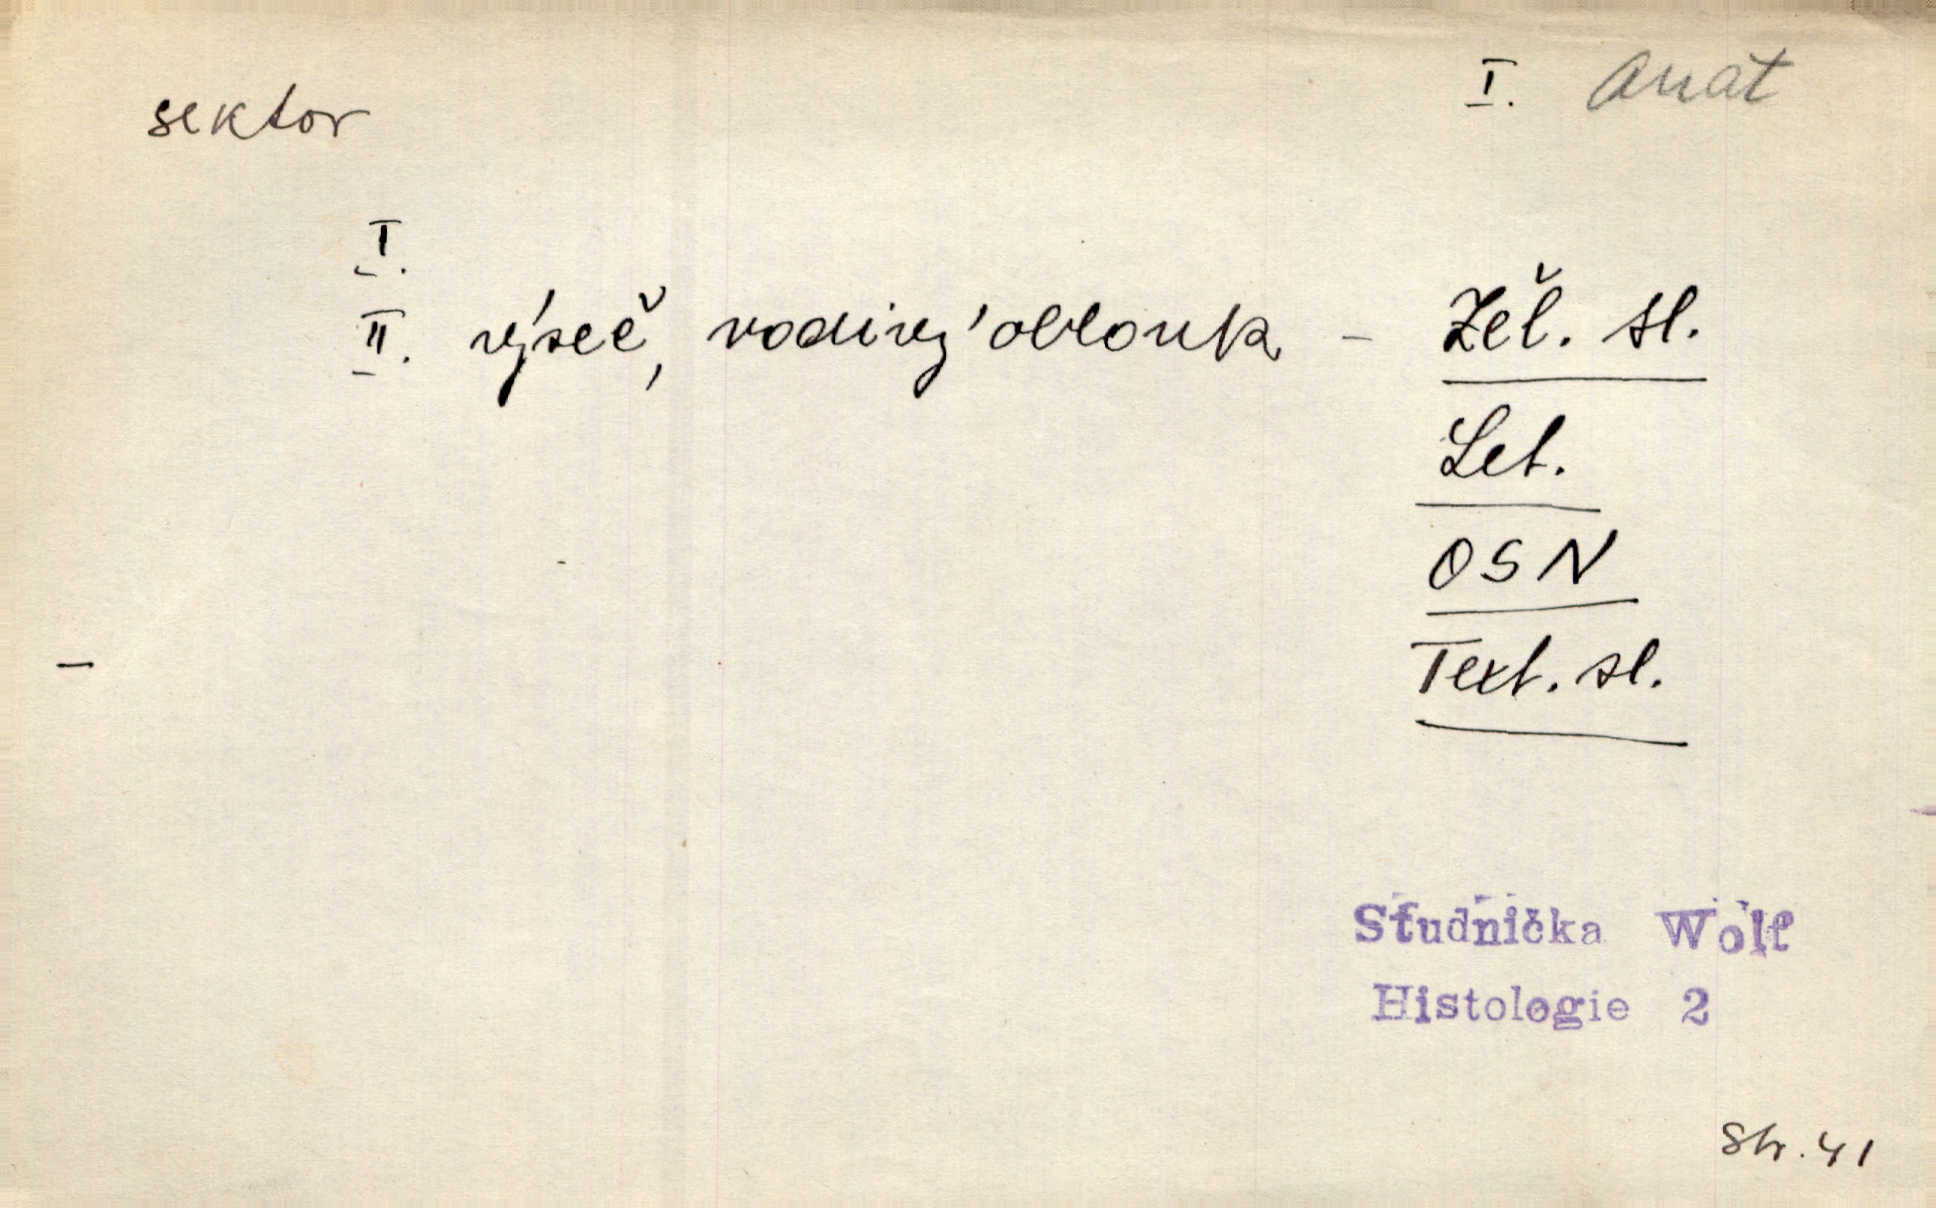 sektor I. Anat
I.
II. výseč, vodivý oblouk - Žel. sl.
Let.
OSN
Text. sl.
Studnička Wolf
Histologie 2
str. 41